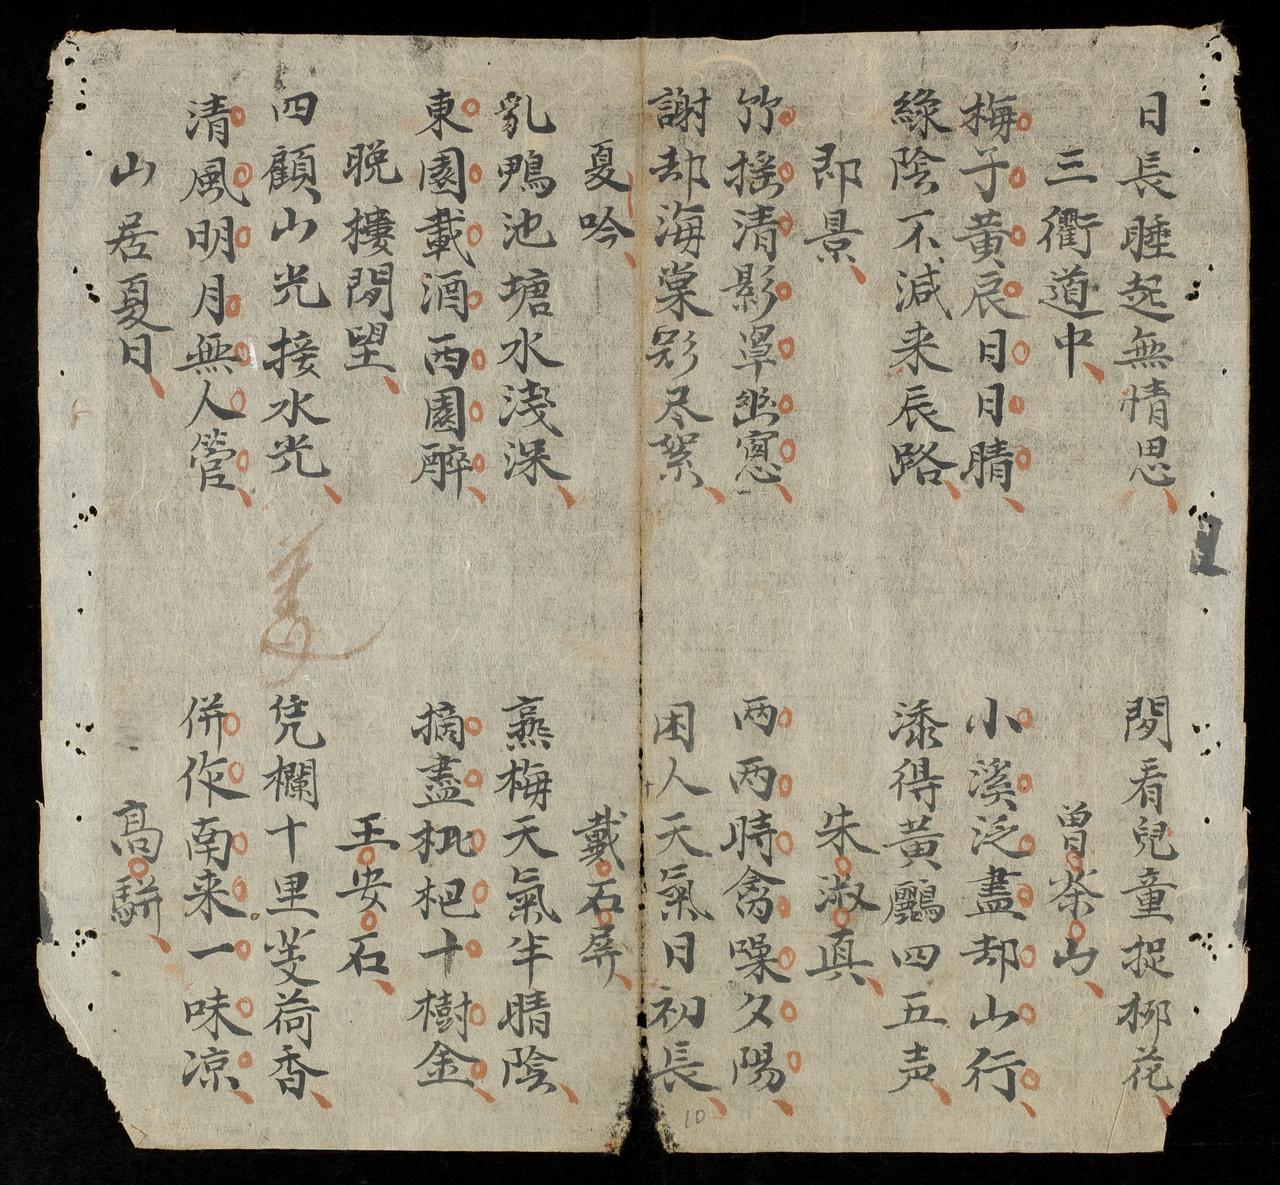 日長睡起無情思
閑看兒童捉柳花
三衢道中
曾茶山
梅子黄辰日日晴
小溪泛盡却山行
綠陰不減来辰路
添得黄鸝四五声
即景
朱淑真
竹摇清影罩幽窓
两两時禽噪夕陽
謝却海棠飛尽絮
困人天氣日初長
夏吟
戴石屏
乳鴨池塘水淺深
熹梅天氣半晴陰
東園載酒西園醉
摘盡枇杷十樹金
晩樓閑望
王安石
四顧山光接水光
凭欄十里芰荷香
清風明月無人管
併作南来一味凉
山居夏日
高駢
10